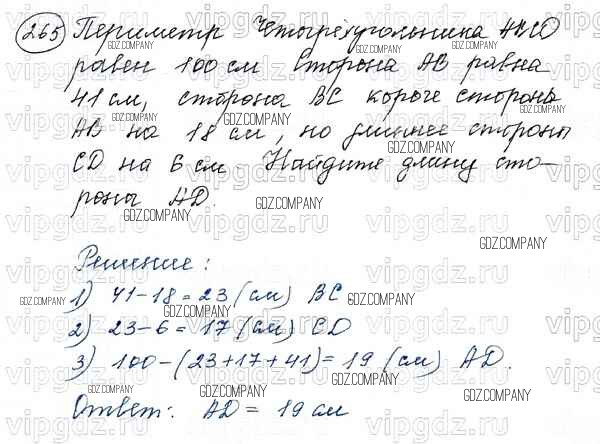 265 Периметр четырёхугольника ABCD
равен 100 см Сторона AB равна
41 см, сторона BC короче стороны
AB на 18 см, но длиннее стороны
CD на 6 см Найдите длину сто-
роны AD.
Решение:
1) 41-18=23 (см) BC
2) 23-6=17 (см) CD
3) 100-(23+17+41)=19 (см) AD.
Ответ: AD = 19 см